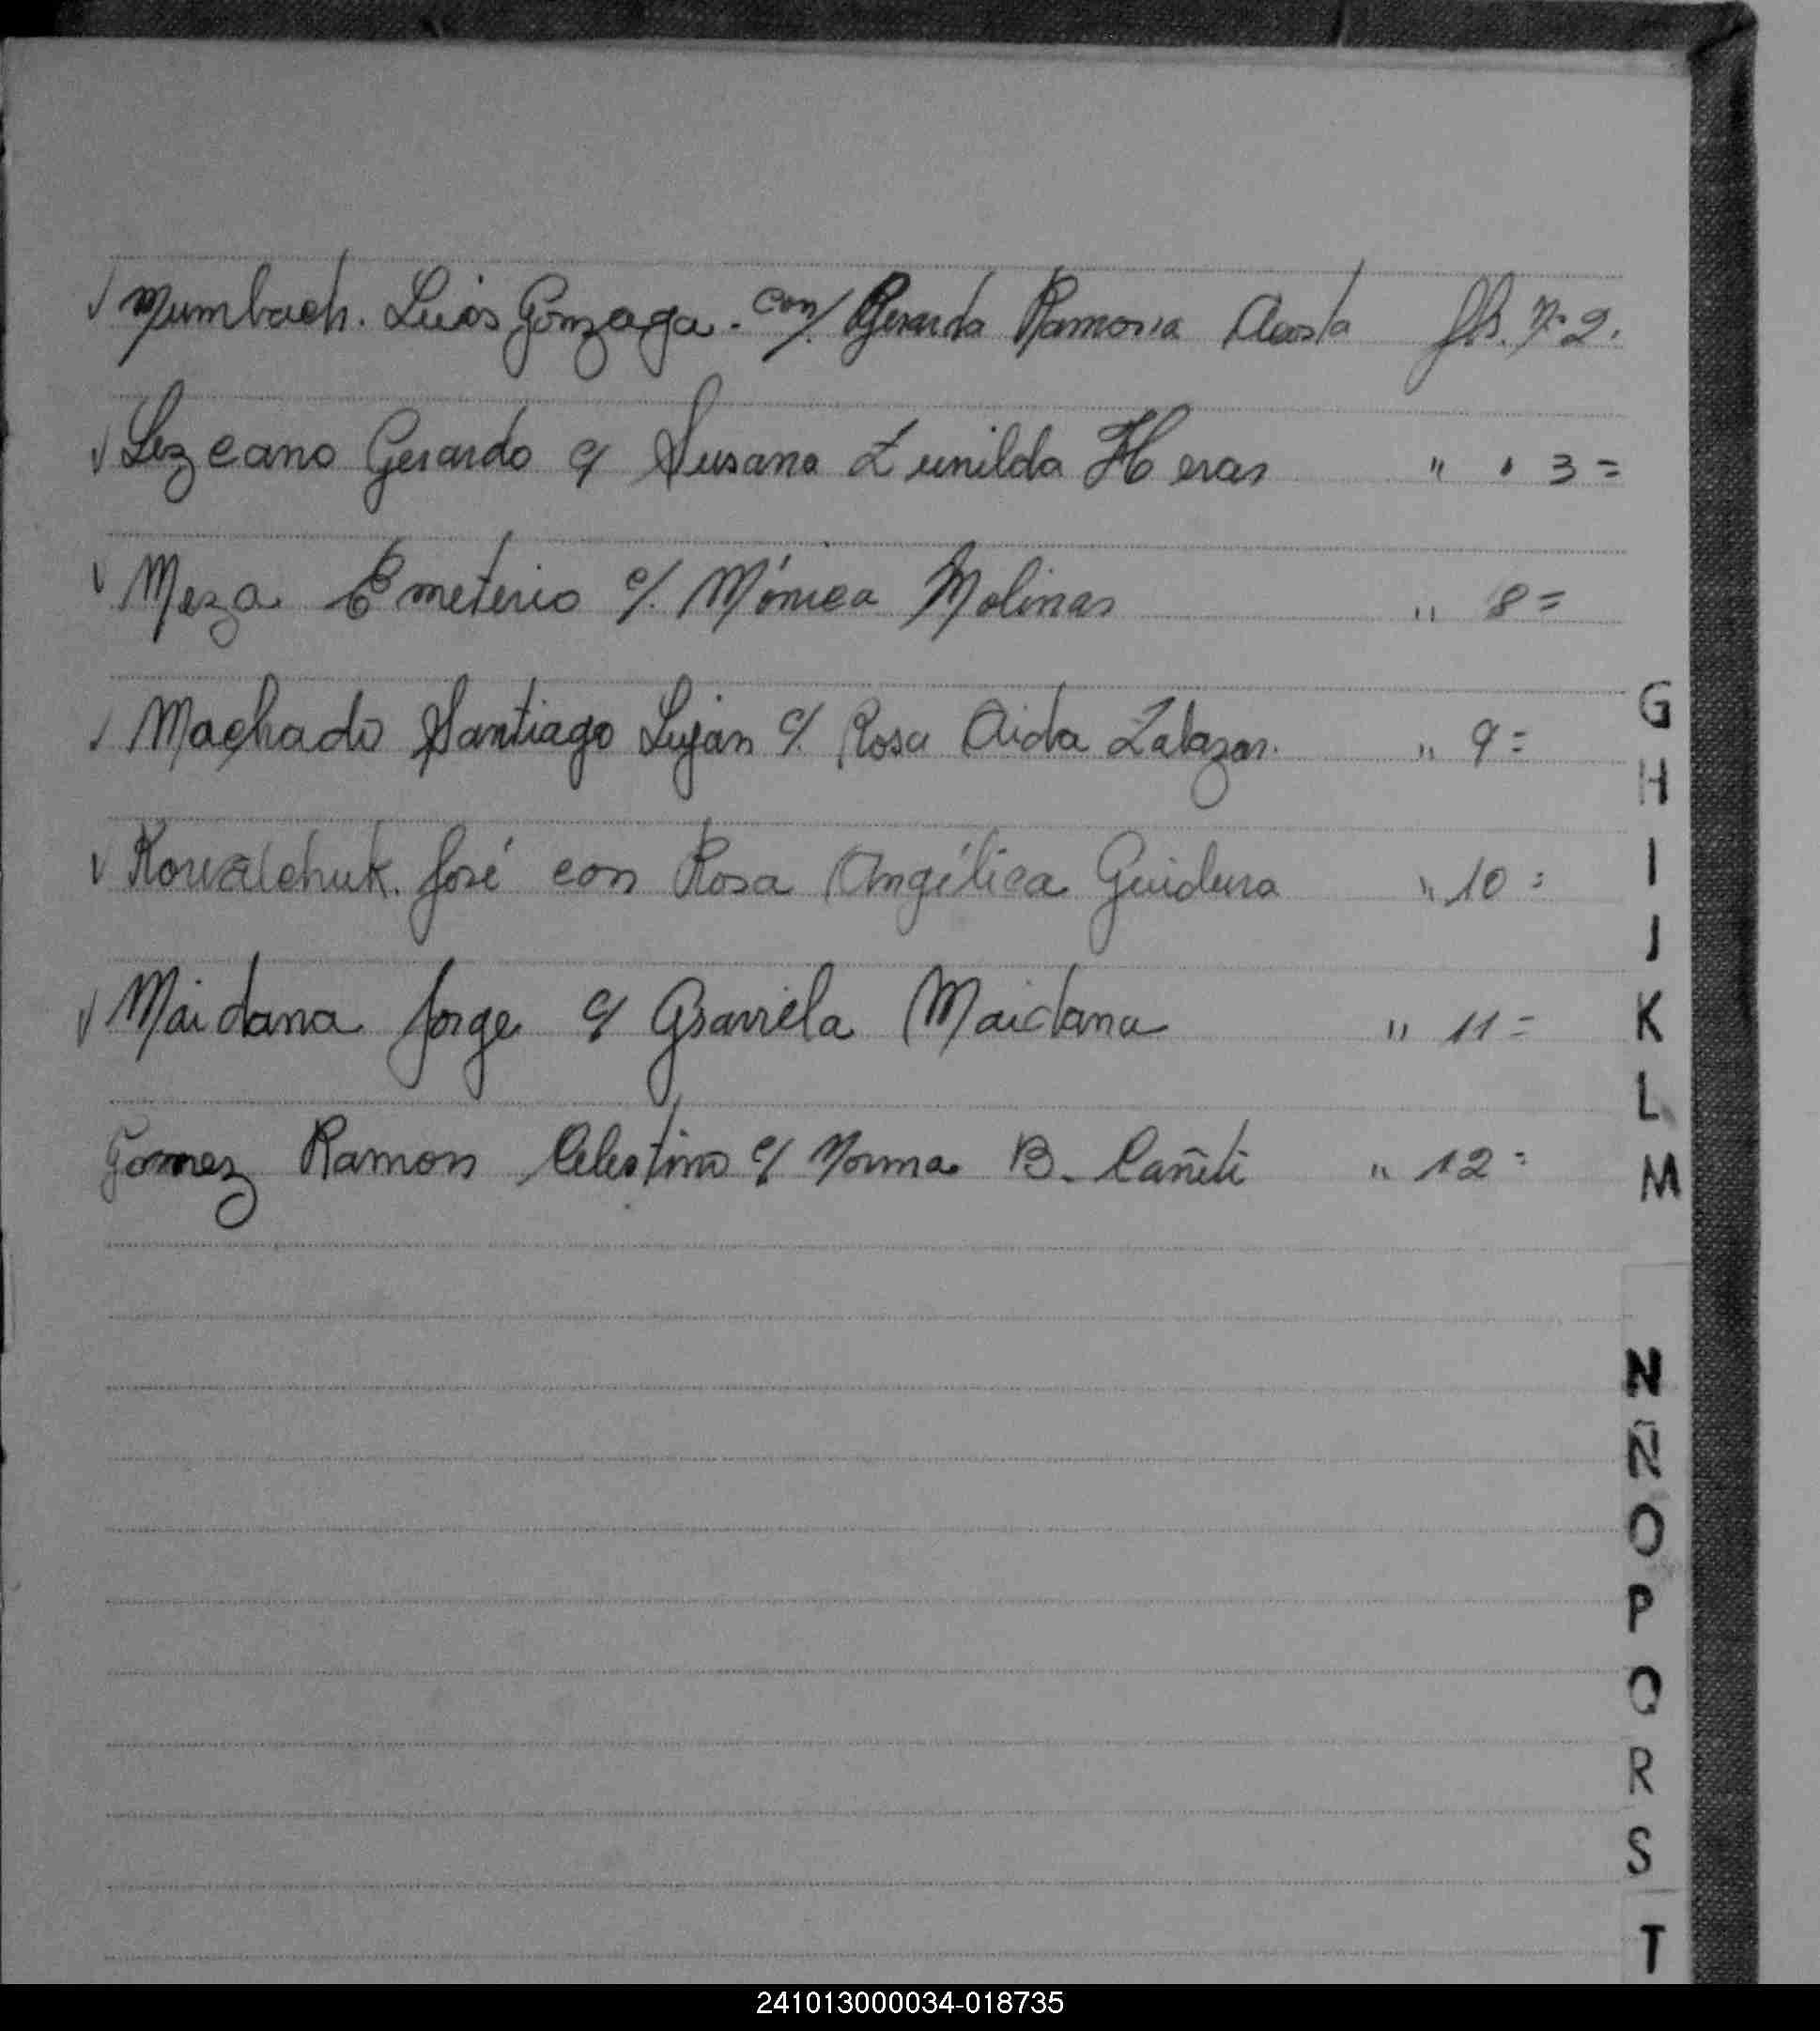 Mumbach. Luis Gonzaga. con/. Gerarda Ramona Acosta fls. nº 2.
Lezcano Gerardo c/ Susana Zunilda Heras " " 3=
Meza Emeterio c/. Mónica Molinas " 8=
Machado Santiago Lujan c/. Rosa Aida Zalazar. " 9=
Kowalchuk. José con Rosa Angélica Guidura " 10=
Maidana Jorge c/ Graviela Maidana " 11=
Gomez Ramon Celestino c/ Norma B. Cañete " 12=
G
H
I
J
K
L
M
N
Ñ
O
P
Q
R
S
T
241013000034-018735